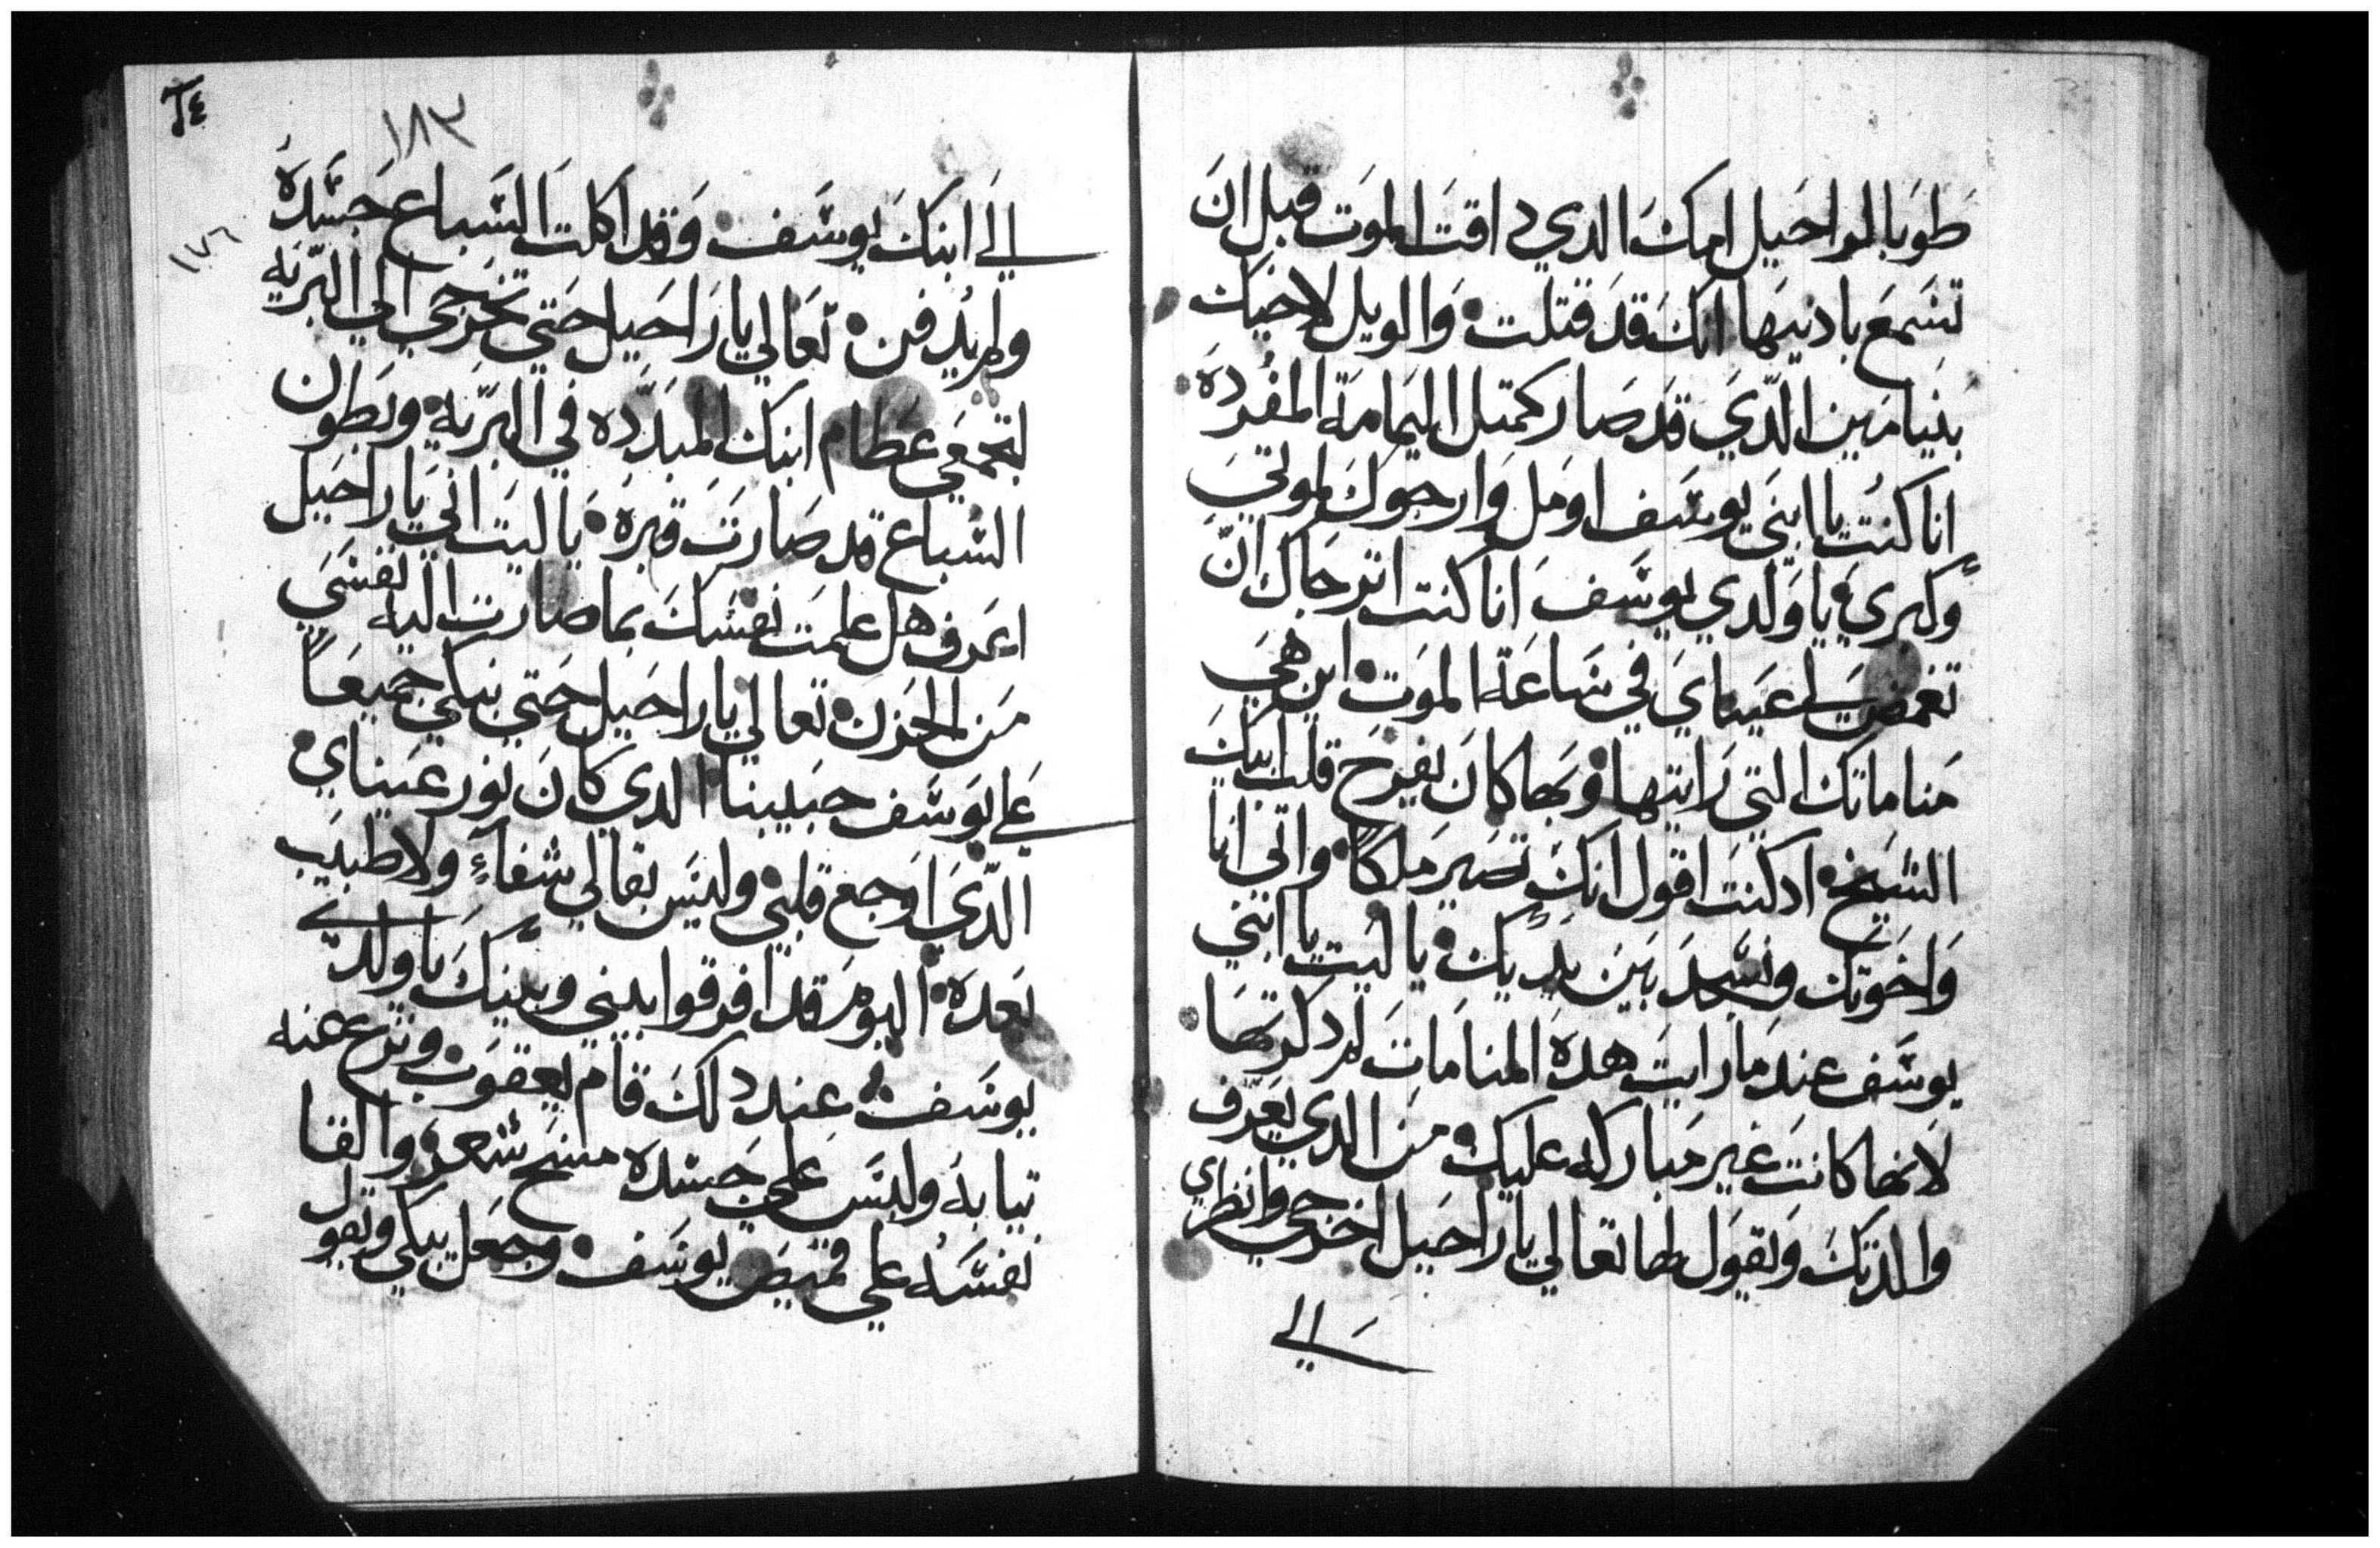 طوبا لراحيل امك الدي داقت الموت قبل ان
تسمع بادنيها انك قد قتلت والويل لاخيك
بنيامين الدي قد صار كمتل اليمامه المفرده
انا كنت يا ابني يوسف اومل وارجوك لموتي
وكبري يا ولدي يوسف انا كنت اترجاك ان
تغمض لي عيناي في ساعة الموت اين هي
مناماتك التي رايتها وبها كان يفرح قلب ابيك
الشيخ اد كنت اقول انك تصير ملكا واتي انا
واخوتك ونسجد بين يديك يا ليت يا ابني
يوسف عند ما رايت هده المنامات لم دكرتها
لانها كانت غير مباركه عليك من الدي يعرف
والدتك ويقول لها تعالي يا راحيل اخرجي وانظري
الي
٢٤
١٨٣
١٧٦
الي ابنك يوسف وقد اكلت السباع جسده
ولم يدفن تعالي يا راحيل حتي تخرجي الي البريه
لتجمعي عظام ابنك المبدده في البريه وبطون
السباع قد صارت قبره يا ليت اني يا راحيل
اعرف هل علمت نفسك بما صارت اليه نفسي
من الحزن تعالي يا راحيل حتي نبكي جميعا
علي يوسف حبيبنا الدي كان نور عيناي
الدي اوجع قلبي وليس بقا لي شفاء ولا طبيب
بعده اليوم قد افرقوا بيني وبينك يا ولدي
يوسف عند دلك قام يعقوب ونزع عنه
تيابه ولبس علي جسده مسح شعر والقا
نفسه علي قميص يوسف وجعل يبكي ويقول